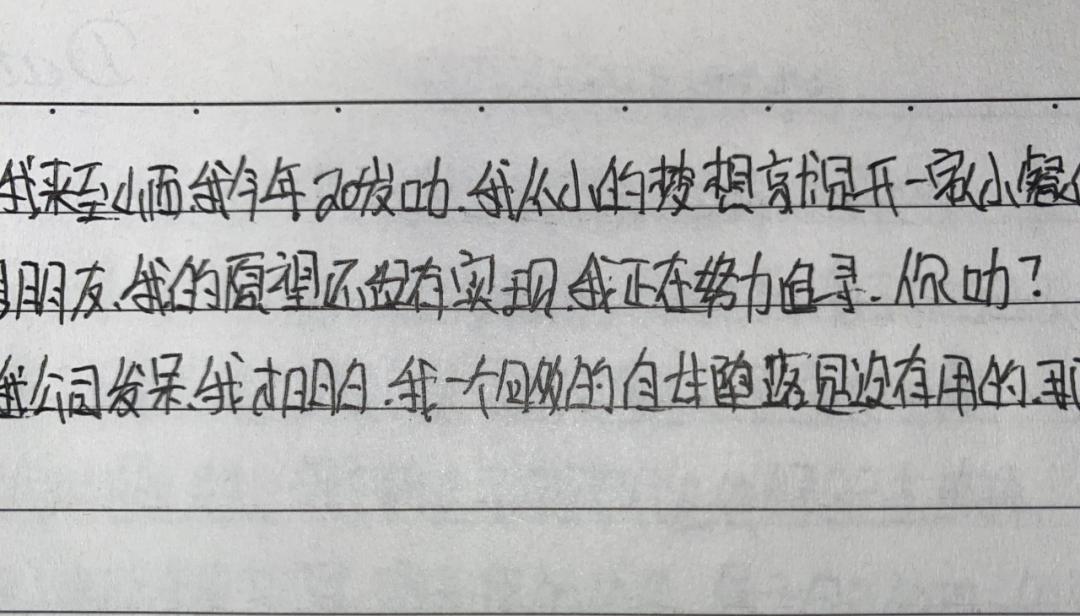 我来至山西,我今年20岁叻.我从小的梦想就是开一家小餐
朋友.我的愿望还没有实现,我正在努力追寻.你叻?
我公司发呆,我才明白.我一个回头的自甘堕落是没有用的.